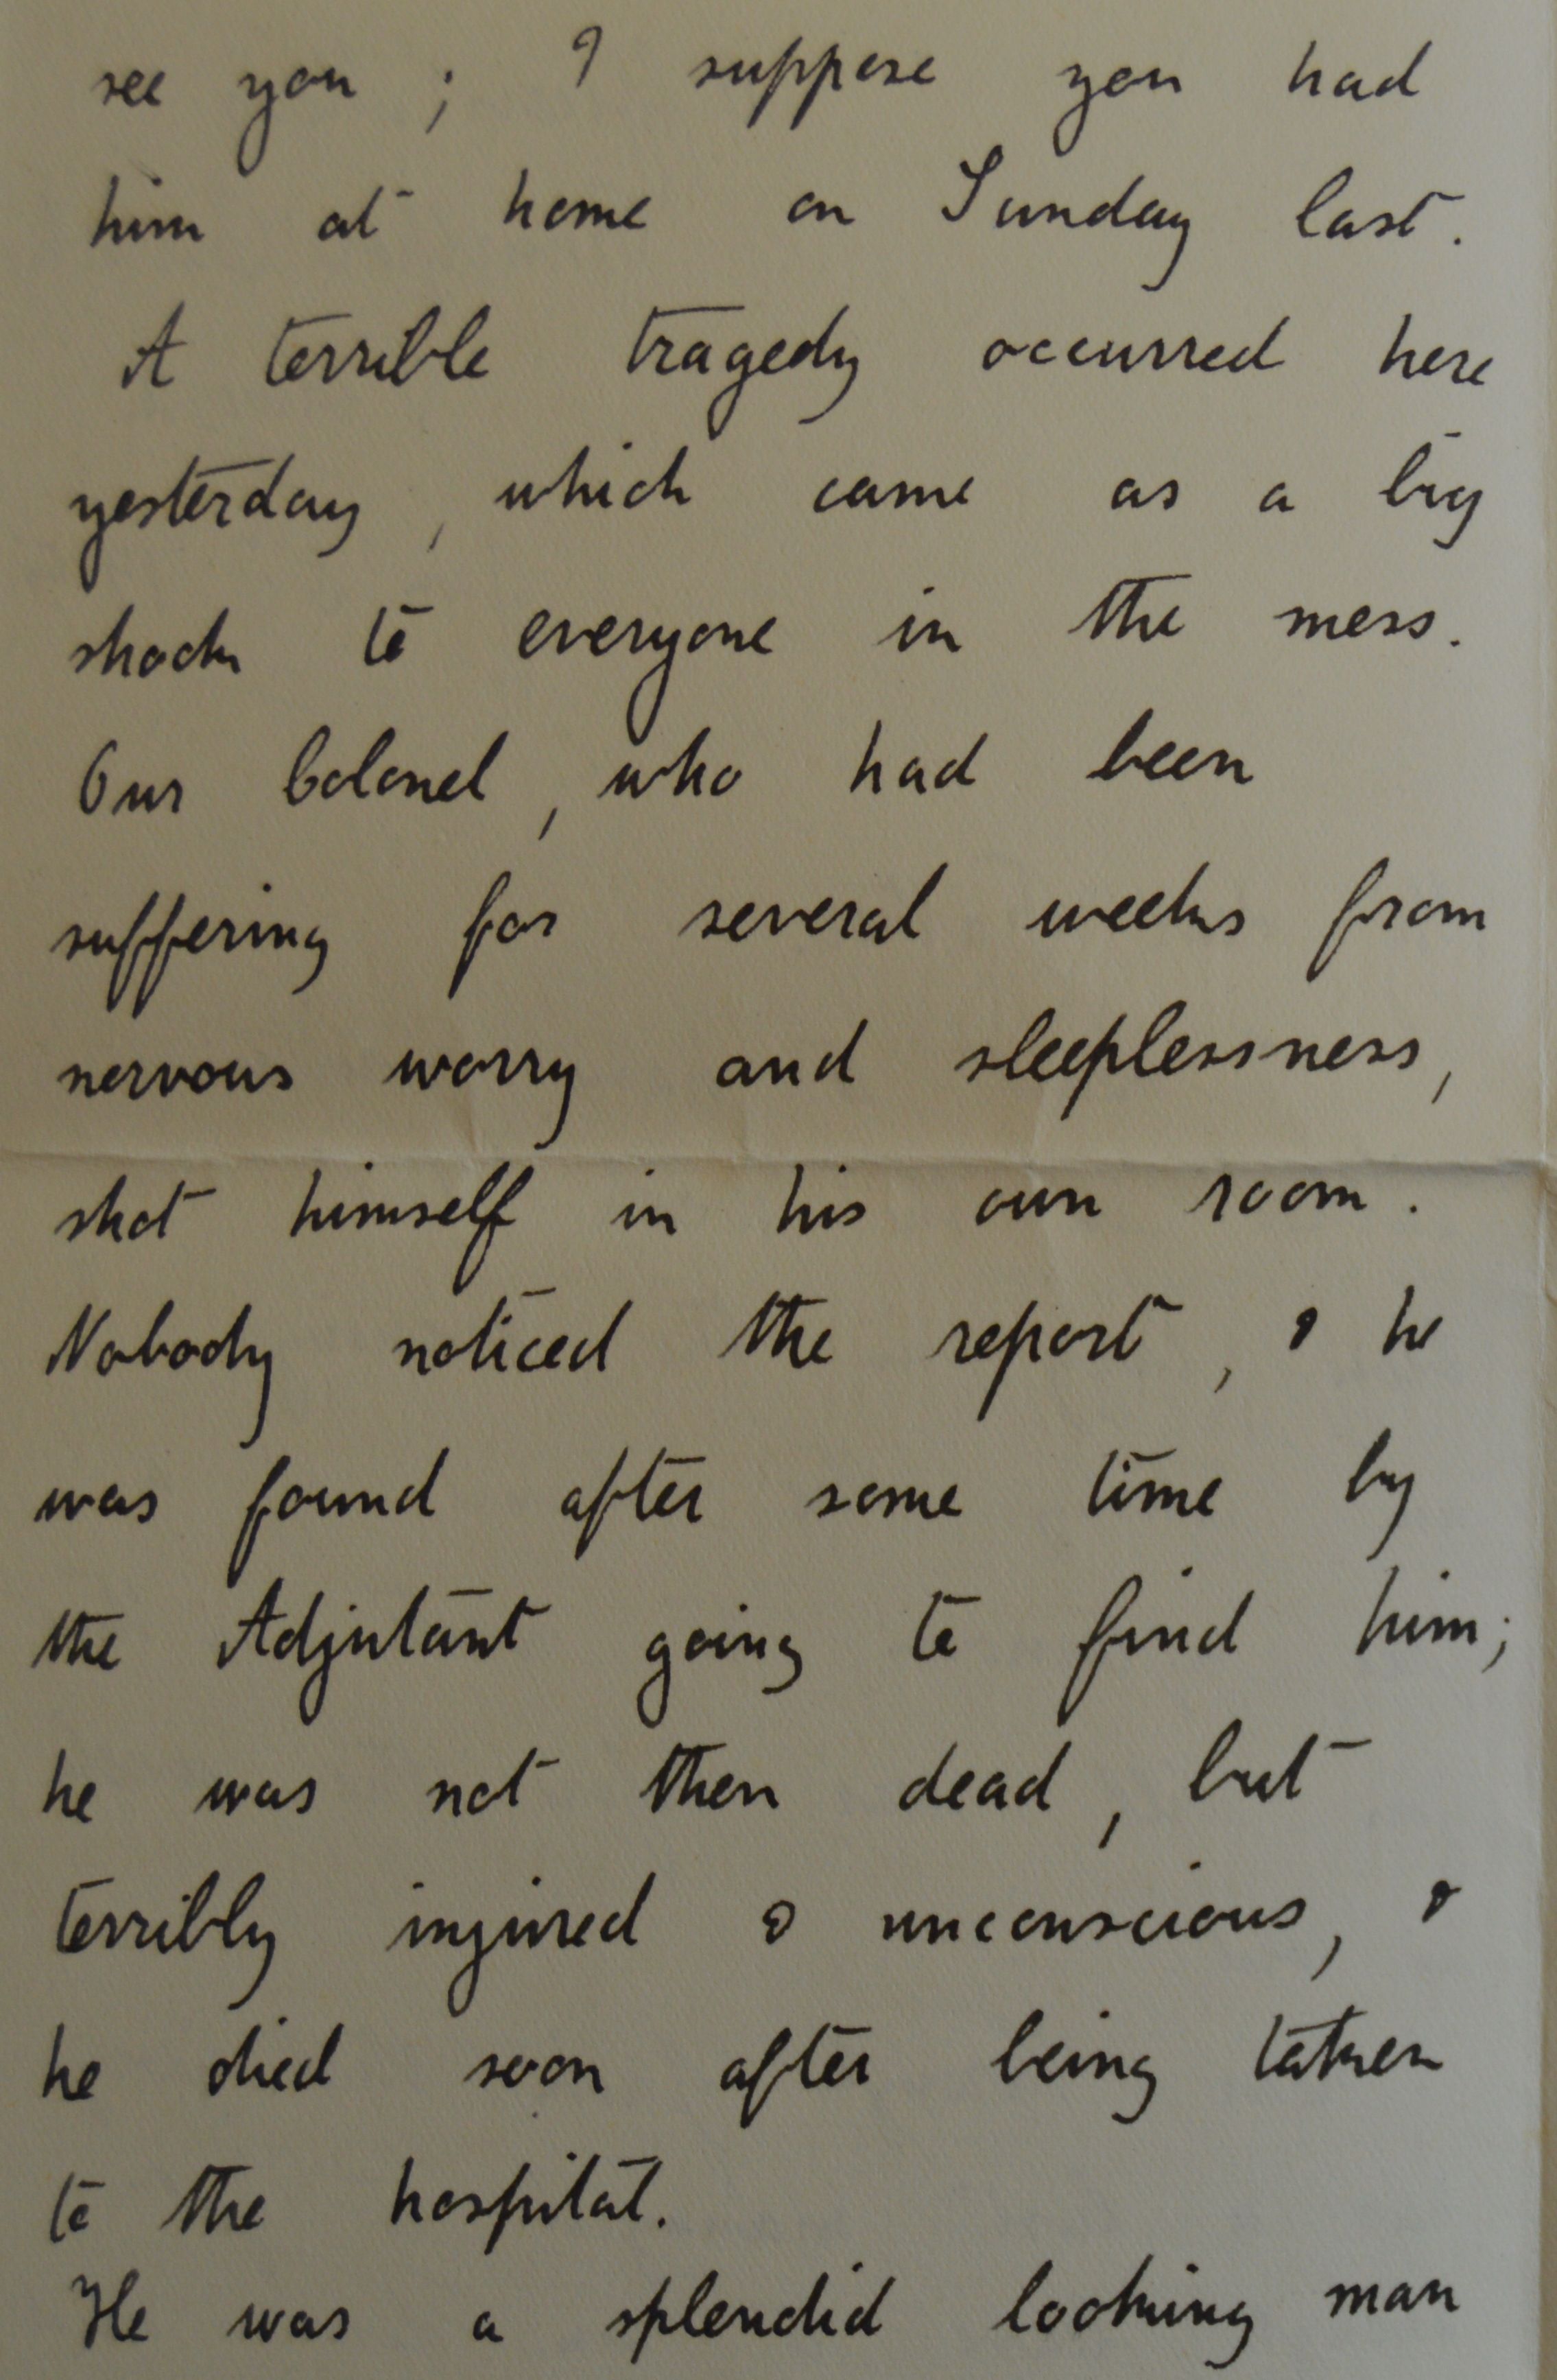 see you ; I suppose you had
him at home on Sunday last.
A terrible tragedy occurred here
yesterday, which came as a big
shock to everyone in the mess.
Our Colonel, who had been
suffering for several weeks from
nervous worry and sleeplessness,
shot himself in his own room.
Nobody noticed the report, & he
was found after some time by
the Adjutant going to find him;
he was not then dead, but
terribly injured & unconscious, &
he died soon after being taken
to the hospital.
He was a splendid looking man